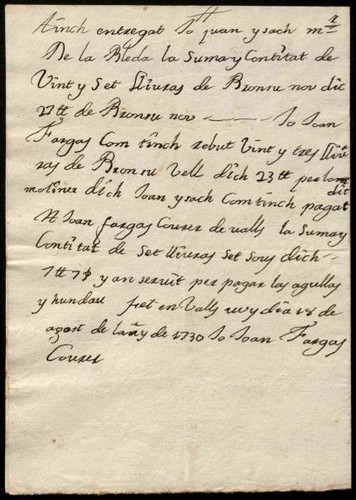 Tinch entregat Jo Juan ysach mr
De la Reda la Sumay Contitat de
Vint y Set lliuras de Bronsu nou dic
27tt de Bronsu nou ——— Jo Joan
Fargas Com tinch rebut Vint y tres lliu
ras de Bronsu Vell dich 23tt per lo dit
moliner dich Joan ysach Com tinch pagat
A Joan fargas Courer de valls la Sumay
Contitat de Set lliuras Set sous dich
7tt 7ſ y an seruit per pagar las agullas
y fret en Valls uuy dia 18 de
agost de lañy de 1730 Jo Joan Fargas
Courer